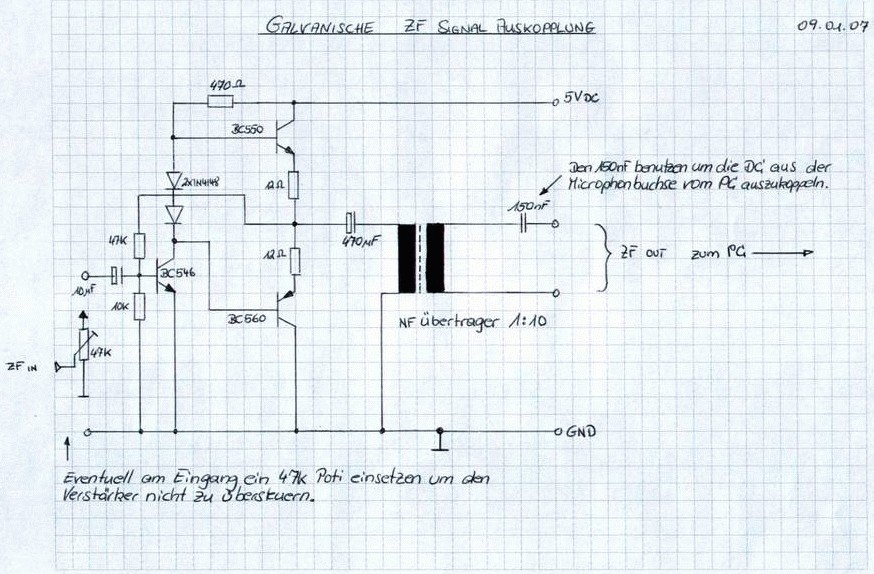 GALVANISCHE ZF SIGNAL AUSKOPPLUNG
09.01.07
470Ω
5VDC
BC550
Den 150nF benutzen um die DC aus der
Microphonbuchse vom PC auszukoppeln.
2x1N4148
12Ω
150nF
470µF
47K
12Ω
ZF OUT zum PC
BC546
10µF
10K
BC560
NF übertrager 1:10
47K
ZF IN
GND
Eventuell am Eingang ein 47k Poti einsetzen um den
Verstärker nicht zu übersteuern.